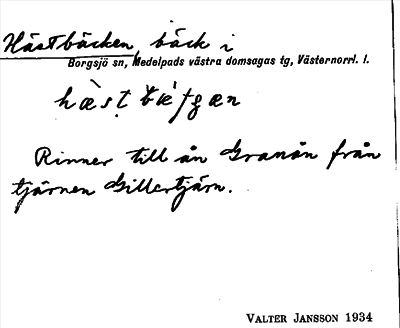 Hästbäcken, bäck i
Borgsjö sn, Medelpads västra domsagas tg, Västernorrl. l.
Rinner till ån Granån från
tjärnen Gillertjärn.
VALTER JANSSON 1934